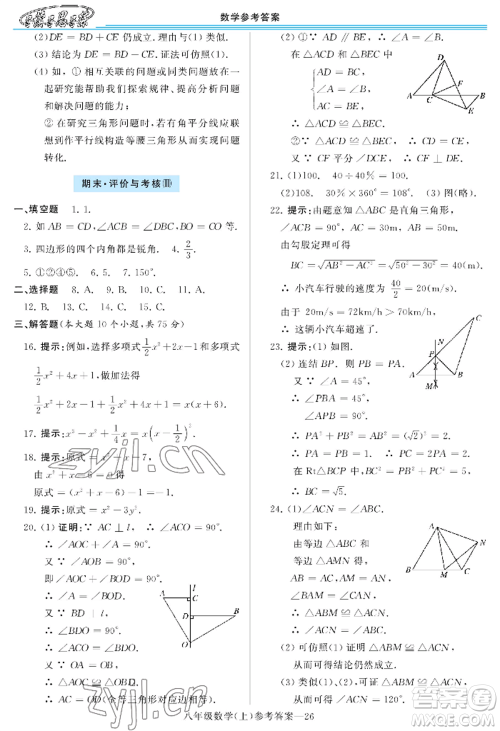 数学参考答案
(2) DE = BD + CE 仍成立. 证法与(1)类似.
(3) 结论为 DE = BD − CE. 证法可仿照(1).
(4) 如, ①将相互关联的问题或同类问题放在一起研究能帮助我们探索规律, 提高分析问题和解决问题的能力;
② 在研究三角形问题时, 若有角平分线应联想到作平行线构造等腰三角形从而实现问题转化.
期末·评价与考核
一、填空题 1. 1.
2. 如 AB = CD, ∠ABC = ∠DCB 等等.
3. 四边形的四个内角都是锐角. 4. 2/3.
5. ①②③④. 6. 5. 7. 150°.
二、选择题 8. A. 9. D. 10. D. 11. A.
12. B. 13. C. 14. C. 15. C.
三、解答题(本大题 10 个小题, 共 75 分)
16. 提示: 例如, 选择多项式 1/2 x² + 2x − 1 和多项式
1/2 x² + 4x + 1, 则
1/2 x² + 2x − 1 + 1/2 x² + 4x + 1 = x(x + 6).
18. 提示: 原式 = x² − x − 7,
原式 = (x² − x) − 7 = −1.
19. 提示: 原式 =
20. (1) 证明: ∵ AC ⊥ l, ∴ ∠ACO = 90°.
∴ ∠AOC + ∠A = 90°.
又 ∵ ∠AOB = 90°,
即 ∠AOC + ∠BOD = 90°,
∴ ∠A = ∠BOD.
又 ∵ BD ⊥ l,
∴ ∠BDO = 90°.
∴ ∠ACO = ∠BDO.
又 ∵ AO = OB,
∴ △AOC ≌ △OBD.
∴ AC = OD (全等三角形对应边相等).
A
C
D
B
O
(2) ① ∵ AC ∥ BE, ∴ ∠A = ∠B.
在 △ACD 和 △BEC 中
AD = BC,
∠A = ∠B,
AC = BE,
∴ △ACD ≌ △BEC.
② ∵ △ACD ≌ △BEC,
∴ CD = CE.
又 ∵ CF 平分 ∠DCE, ∴ CF ⊥ DE.
D
F
A
C
B
E
21. (1) 100.
(2) 108. 30% × 360° = 108°. (3) 图(略).
22. 提示: 由题意知 △ABC 是直角三角形,
由勾股定理可得
BC = √(AB² − AC²) = √(50² − 30²) = 40(m).
∴ 小汽车行驶的速度为 40/2 = 20(m/s).
由于 20m/s = 72km/h > 70km/h,
所以, 这辆小汽车超速了.
23. 提示: (1) 如图.
(2) 连结 BP. 则 PB = PA.
又 ∵ ∠A = 45°,
∴ ∠PBA = 45°,
∠APB = 90°.
∴ PA² + PB² = AB² = (√2)² = 2.
∴ PA = PB = 1. ∴ PC = 2.
在 Rt△BCP 中, BC² = PB² + PC² = 5.
∴ BC = √5.
P
M
24. (1) ∠ABC = ∠ACN.
理由如下:
由等边 △ABC, 等边 △AMN, 可得
AB = AC, AM = AN, ∠BAM = ∠CAN.
∴ △ABM ≌ △ACN.
∴ ∠ABC = ∠ACN.
A
N
B
M
C
(2) 可仿照(1)证明 △ABM ≌ △ACN, 从而得结论仍然成立.
(3) 类似(1), 可得 △ABM ≌ △ACN.
∴ ∠ACN = 120°.
八年级数学(上)参考答案—26